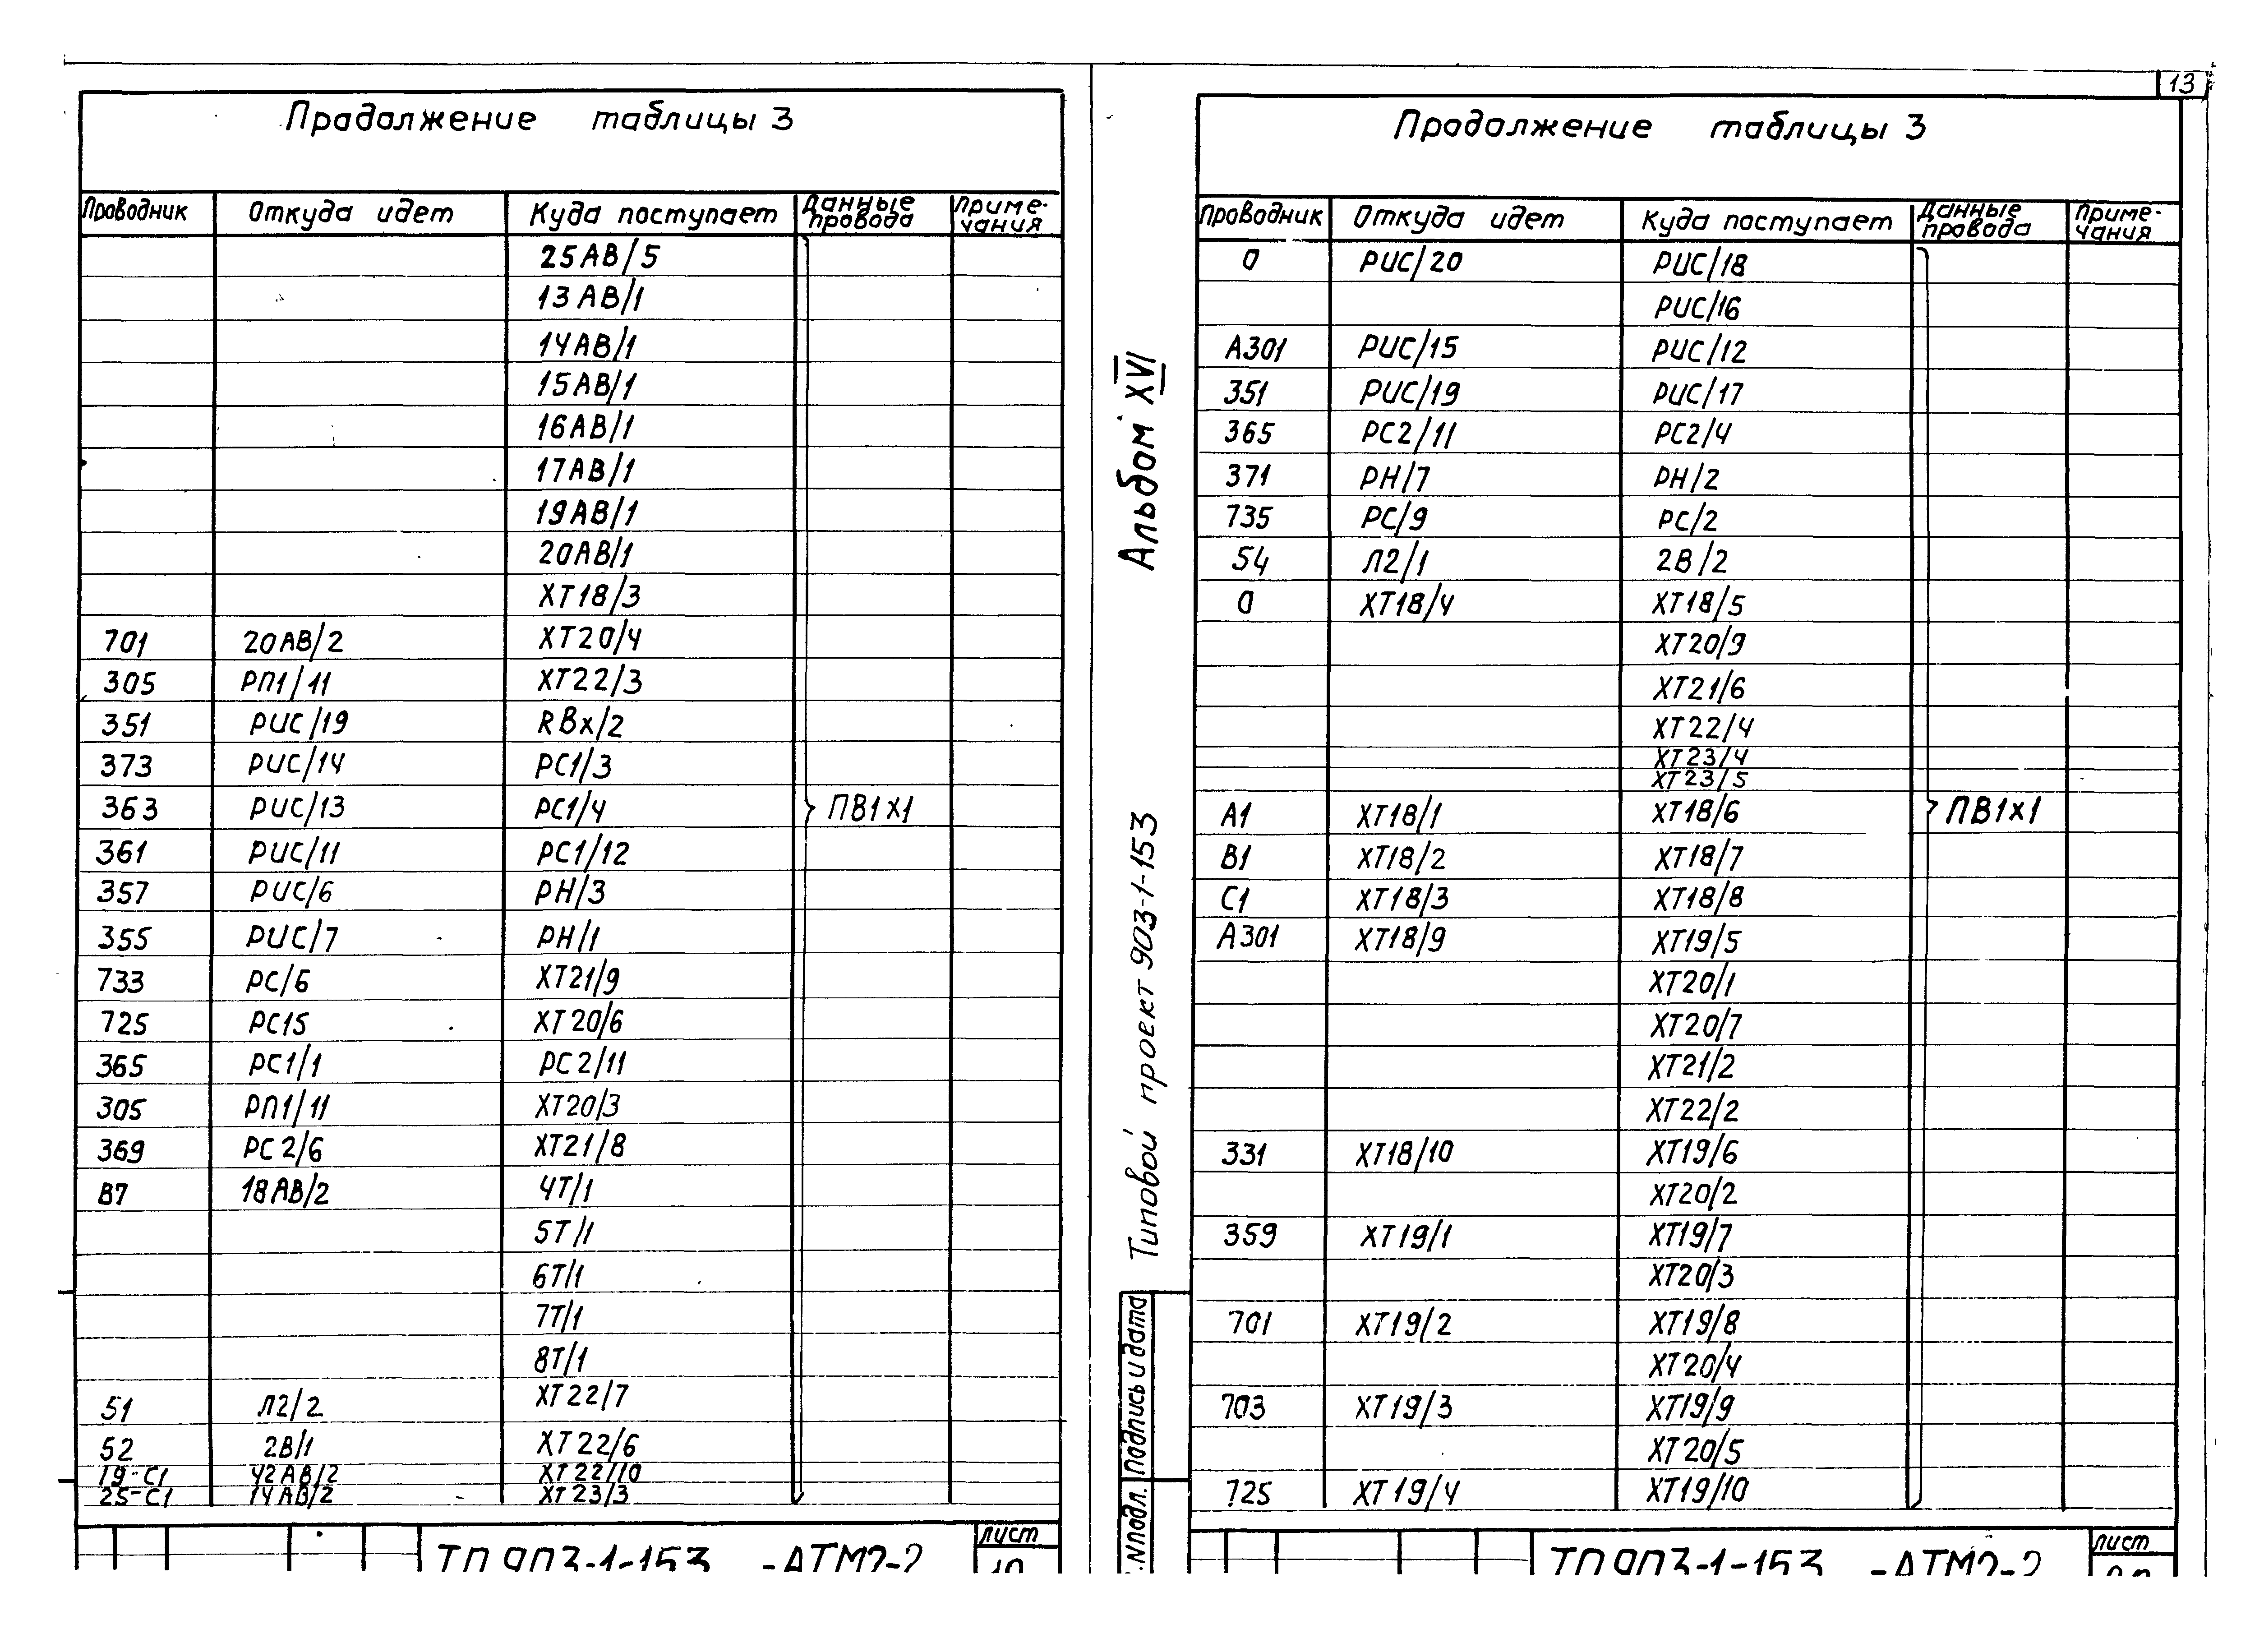 13
Прадалжение таблицы 3
Проводник Откуда идет Куда поступает Данные провода Приме-чания
25АВ/5
13АВ/1
14АВ/1
15АВ/1
16АВ/1
17АВ/1
19АВ/1
20АВ/1
ХТ18/3
701 20АВ/2 ХТ20/4
305 РП1/11 ХТ22/3
351 РИС/19 RВх/2
373 РИС/14 РС1/3
363 РИС/13 РС1/4 ПВ1х1
361 РИС/11 РС1/12
357 РИС/6 РН/3
355 РИС/7 РН/1
733 РС/6 ХТ21/9
725 РС15 ХТ20/6
365 РС1/1 РС2/11
305 РП1/11 ХТ20/3
369 РС2/6 ХТ21/8
В7 18АВ/2 4Т/1
5Т/1
6Т/1
7Т/1
8Т/1
51 Л2/2 ХТ22/7
52 2В/1 ХТ22/6
19-С1 42АВ/2 ХТ22/10
25-С1 14АВ/2 ХТ23/3
лист
ТП 903-1-153 -АТМ2-2
Альбом XVI
Типовой проект 903-1-153
Подпись и дата
N подл.
Продолжение таблицы 3
Проводник Откуда идет Куда поступает Данные провода Приме-чания
0 РИС/20 РИС/18
РИС/16
А301 РИС/15 РИС/12
351 РИС/19 РИС/17
365 РС2/11 РС2/4
371 РН/7 РН/2
735 РС/9 РС/2
54 Л2/1 2В/2
0 ХТ18/4 ХТ18/5
ХТ20/9
ХТ21/6
ХТ22/4
ХТ23/4
ХТ23/5
А1 ХТ18/1 ХТ18/6 ПВ1х1
В1 ХТ18/2 ХТ18/7
С1 ХТ18/3 ХТ18/8
А301 ХТ18/9 ХТ19/5
ХТ20/1
ХТ20/7
ХТ21/2
ХТ22/2
331 ХТ18/10 ХТ19/6
ХТ20/2
359 ХТ19/1 ХТ19/7
ХТ20/3
701 ХТ19/2 ХТ19/8
ХТ20/4
703 ХТ19/3 ХТ19/9
ХТ20/5
725 ХТ19/4 ХТ19/10
лист
ТП 903-1-153 -АТМ2-2